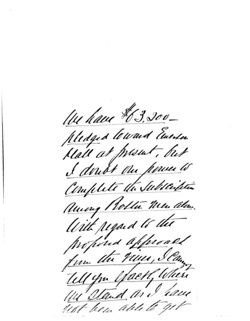 We have $63,500—
pledged toward Emerson
Hall at present, but
I doubt our power to
complete the subscription
among Boston men alone.
With regard to the
proposed approval
from the          , I
tell you exactly where
we stand, as I have
not been able to get